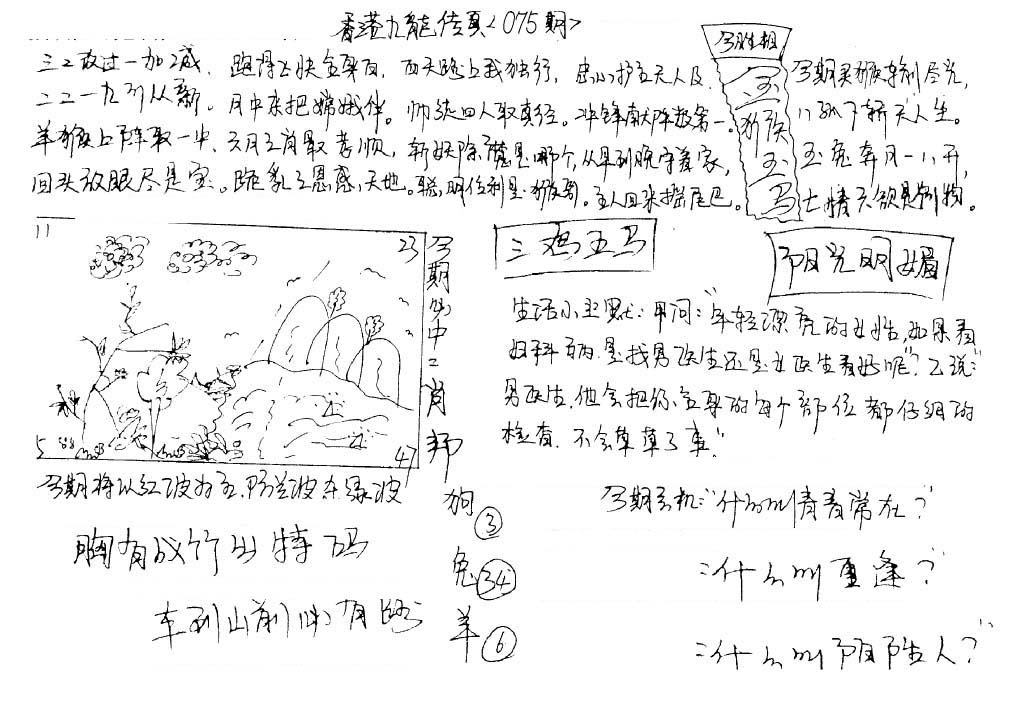 香港九龍传真<075期>
三二放过一加减、跑得上快全身白，西天路上我独行，忠心护主无人及，
二二一九列从新。月中来把嫦娥伴。师徒四人取真经。冲锋献阵数第一。
羊猴上阵取一中、六月三肖最孝顺，斩妖除魔是哪个，从早到晚守着家，
回头放眼尽是宝。跪乳之恩感天地。聪明伶利是猴哥。主人回来摇尾巴。
今胜相
玉猴玉马
今期灵猴专制尽光，
八孤下轿天人生。
玉兔奔月一八开，
七情六欲是制物。
11
23
5
47
今期必中二肖邦
三鸡五马
阳光明媚
生活小幽默：甲问："年轻漂亮的女性，如果看
妇科病.是找男医生还是女医生看好呢？"乙说："
男医生.他会把你全身的每个部位都仔细的
检查.不会草草了事"
今期将以红波为主.防兰波杀绿波
胸有成竹出特码
车到山前必有路
狗③
兔㉞
羊⑥
今期玄机："什么叫青春常在？"
："什么叫重逢？"
："什么叫阴阳人？"